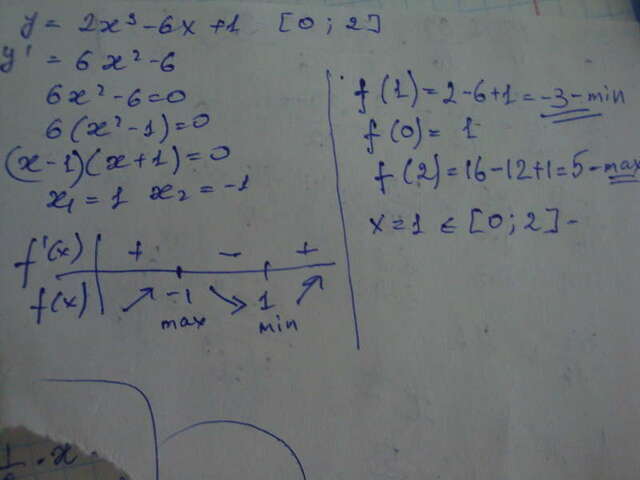 y = 2x³-6x+1 [0;2]
y' = 6x²-6
6x²-6=0
6(x²-1)=0
(x-1)(x+1)=0
x₁=1 x₂=-1
f'(x) + - +
f(x) ↗ -1 ↘ 1 ↗
max min
f(1)=2-6+1=-3-min
f(0)=1
f(2)=16-12+1=5-max
x=1 ∈ [0;2]-
· x ·